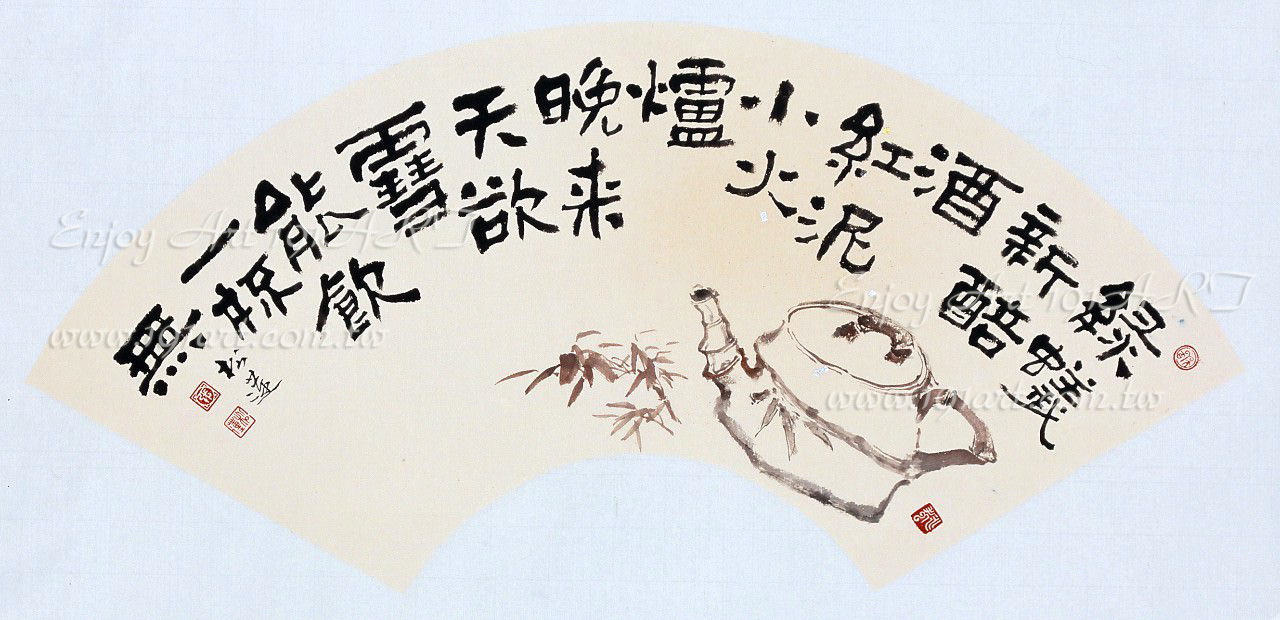 綠蟻
新醅
酒
紅泥
小火
爐
晚来
天欲
雪
能飲
一杯
無
Enjoy Art 101ART
www.101arts.com.tw
Enjoy Art 101ART
www.101arts.com.tw